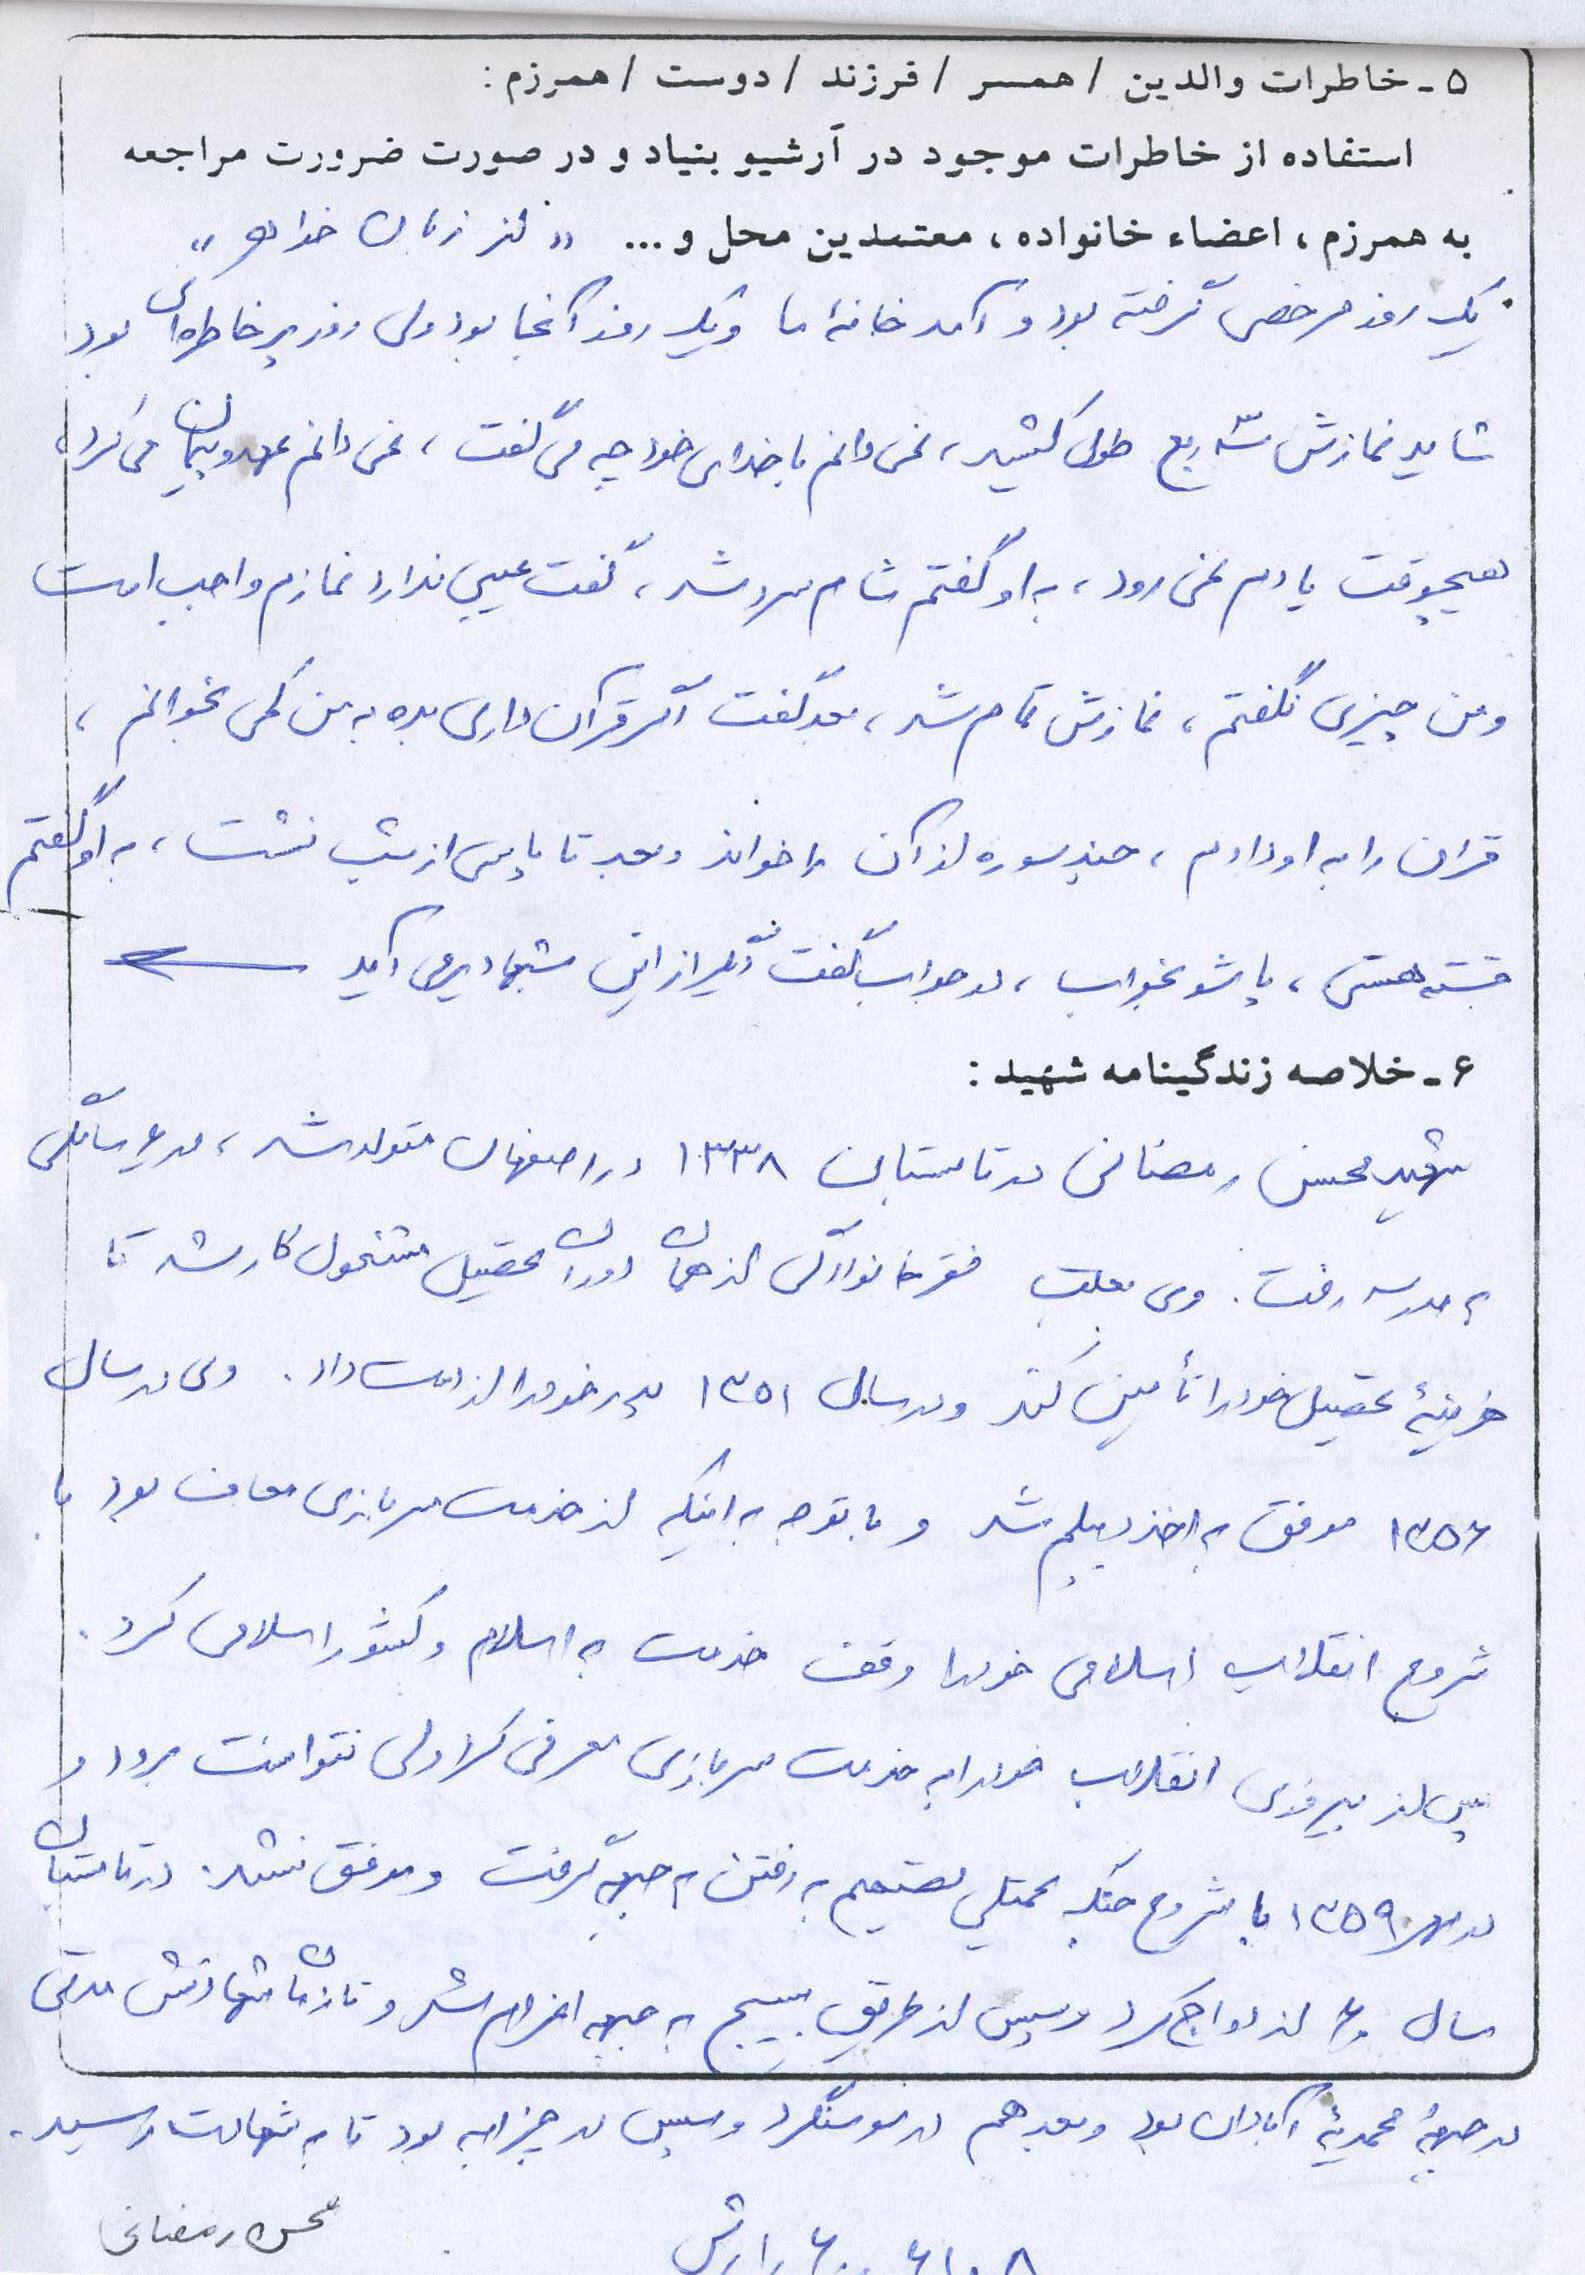 ۵ - خاطرات والدین / همسر / فرزند / دوست / همرزم :
استفاده از خاطرات موجود در آرشیو بنیاد و در صورت ضرورت مراجعه
به همرزم ، اعضاء خانواده ، معتمدین محل و ... « از زبان خواهر »
یک روز مرخصی گرفته بود و آمد خانهٔ ما و یک روز آنجا بود ولی روز پر خاطره‌ای بود
شاید نمازش سه ربع طول کشید ، نمی دانم با خدای خود چه می گفت ، نمی دانم عهد و پیمان می کرد ،
هیچوقت یادم نمی رود ، به او گفتم شام سرد شد ، گفت عیبی ندارد نمازم واجب است
و من چیزی نگفتم ، نمازش تمام شد ، بعد گفت اگر قرآن داری بده به من کمی بخوانم ،
قران را به او دادم ، چند سوره از آن را خواند و بعد تا پاسی از شب نشست ، به او گفتم
خسته هستی ، پاشو بخواب ، در جواب گفت دیگر از این شبها دیر می آید
۶ - خلاصه زندگینامه شهید :
شهید محسن رمضانی در تابستان ۱۳۳۸ در اصفهان متولد شد ، در ۶ سالگی
به مدرسه رفت . وی بعلت فقر خانوادگی از همان دوران تحصیل مشغول کار شد تا
هزینهٔ تحصیل خود را تأمین کند و در سال ۱۳۵۱ پدر خود را از دست داد . وی در سال
۱۳۵۶ موفق به اخذ دیپلم شد و با توجه به اینکه از خدمت سربازی معاف بود با
شروع انقلاب اسلامی خود را وقف خدمت به اسلام و کشور اسلامی کرد .
پس از پیروزی انقلاب خود را به خدمت سربازی معرفی کرد ولی نتوانست برود و
در مهر ۱۳۵۹ با شروع جنگ تحمیلی تصمیم به رفتن به جبهه گرفت و موفق نشد . در تابستان
سال ۶۰ ازدواج کرد و سپس از طریق بسیج به جبهه اعزام شد و تا زمان شهادتش مدتی
در جبههٔ محمدیهٔ آبادان بود و بعد هم در سوسنگرد و سپس در چزابه بود تا به شهادت رسید .
محسن رمضانی